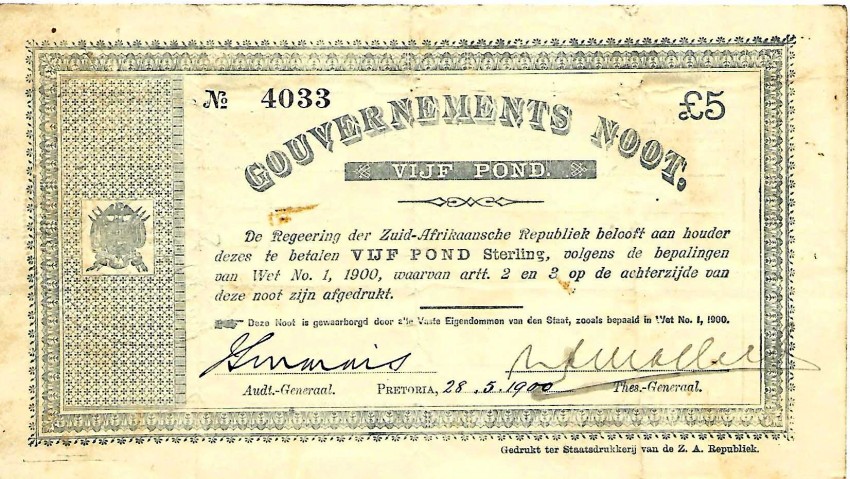 № 4033
£5
GOUVERNEMENTS NOOT.
VIJF POND.
De Regeering der Zuid-Afrikaansche Republiek belooft aan houder
dezes te betalen VIJF POND Sterling, volgens de bepalingen
van Wet No. 1, 1900, waarvan artt. 2 en 3 op de achterzijde van
deze noot zijn afgedrukt.
Deze Noot is gewaarborgd door alle Vaste Eigendommen van den Staat, zooals bepaald in Wet No. 1, 1900.
Audt.-Generaal. PRETORIA, 28.5.1900 Thes.-Generaal.
Gedrukt ter Staatsdrukkerij van de Z. A. Republiek.